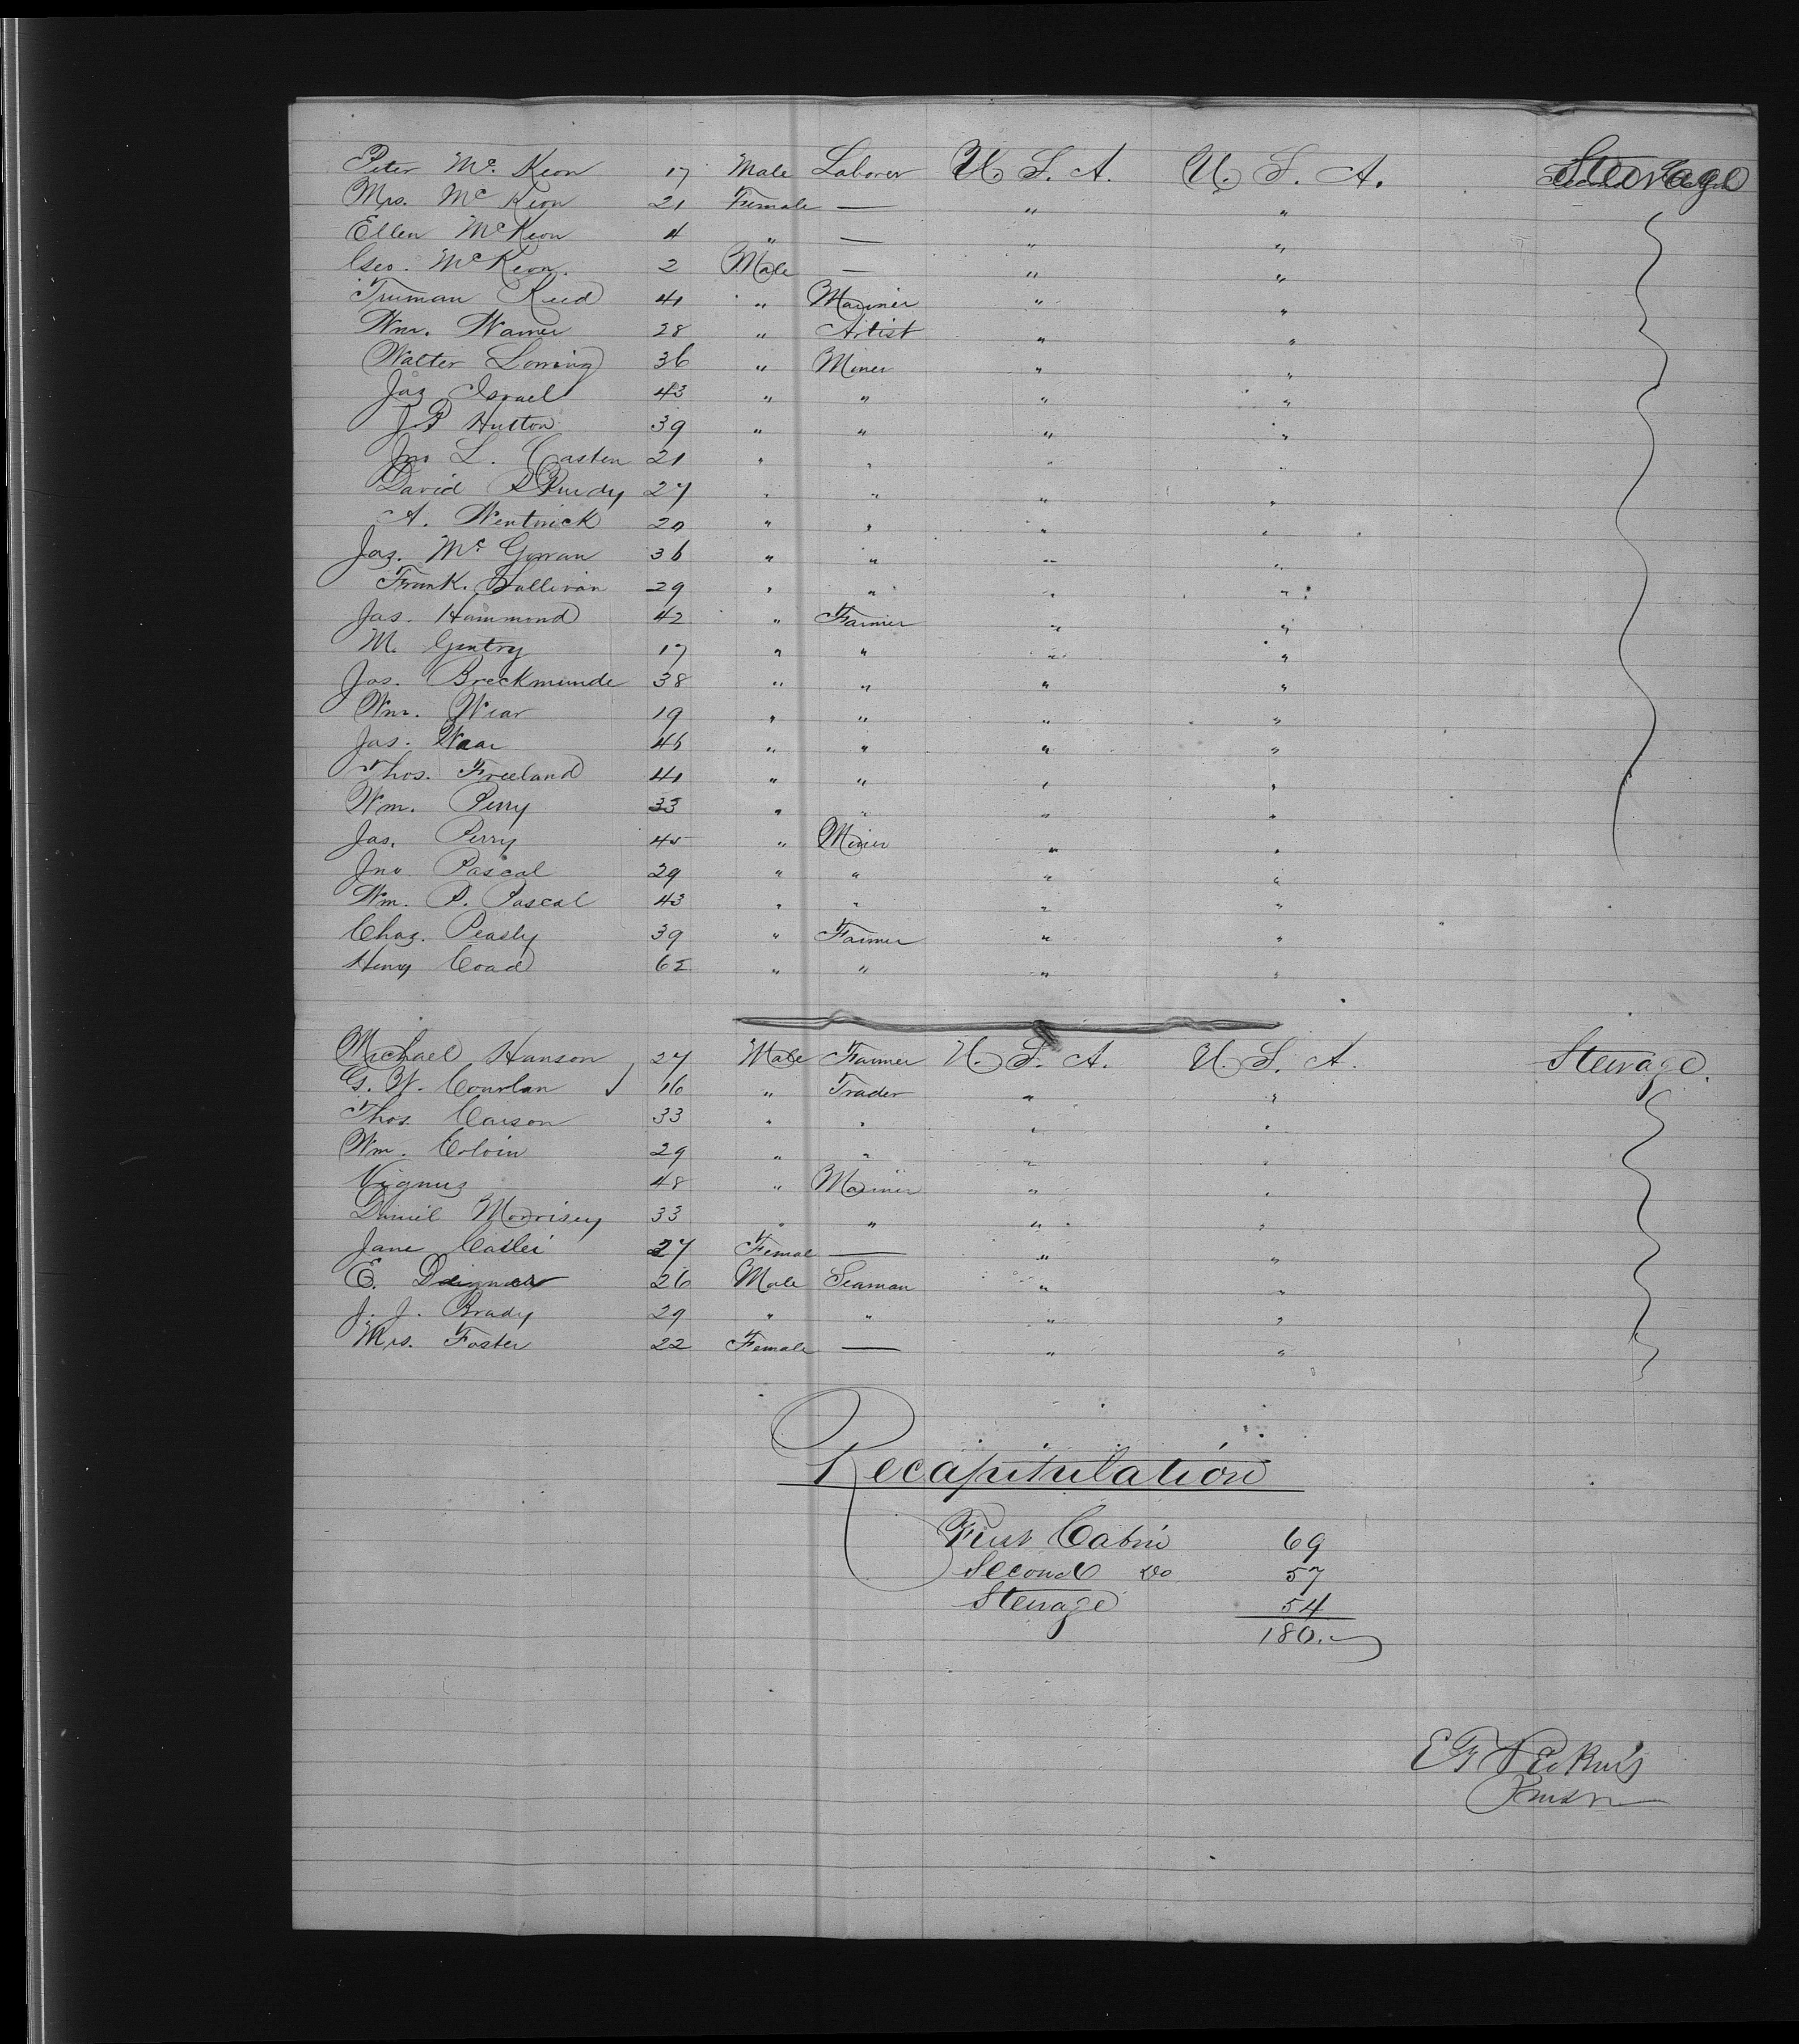 Peter Mc. Keon 17 Male Laborer U. S. A. U. S. A. Steerage
Mrs. Mc Keon 21 Female — " "
Ellen McKeon 4 " — " "
Geo. McKeon. 2 Male — " "
Truman Reed 41 " Mariner " "
Wm. Warner 28 " Artist " "
Walter Loming 36 " Miner " "
Jas Israel 43 " " " "
J P Hutton 39 " " " "
Jno L. Casten 21 " " " "
David Purdy 27 " " " "
A. Wentwick 20 " " " "
Jas. Mc Gowan 36 " " " "
Frank. Sullivan 29 " " " "
Jas. Hammond 42 " Farmer " "
M. Gentry 17 " " " "
Jas. Breckmunde 38 " " " "
Wm. Wear 19 " " " "
Jas. Wear 46 " " " "
Thos. Freeland 41 " " " "
Wm. Perry 33 " " " "
Jas. Perry 45 " Miner " "
Jno Pascal 29 " " " "
Wm. P. Pascal 43 " " " "
Chas. Peasly 39 " Farmer " "
Henry Coad 65 " " " "
Michael Hanson 27 Male Farmer U. S. A. U. S. A. Steerage.
G. W. Courlan 16 " Trader " "
Thos. Carson 33 " " " "
Wm. Colvin 29 " " " "
Vignus 48 " Mariner " "
Daniel Morrisey 33 " " " "
Jane Caslei 27 Femal — " "
E. 26 Male Seaman " "
J. J. Brady 29 " " " "
Mrs. Foster 22 Female — " "
Recapitulation
First Cabin 69
Second Do 57
Steerage 54
180.